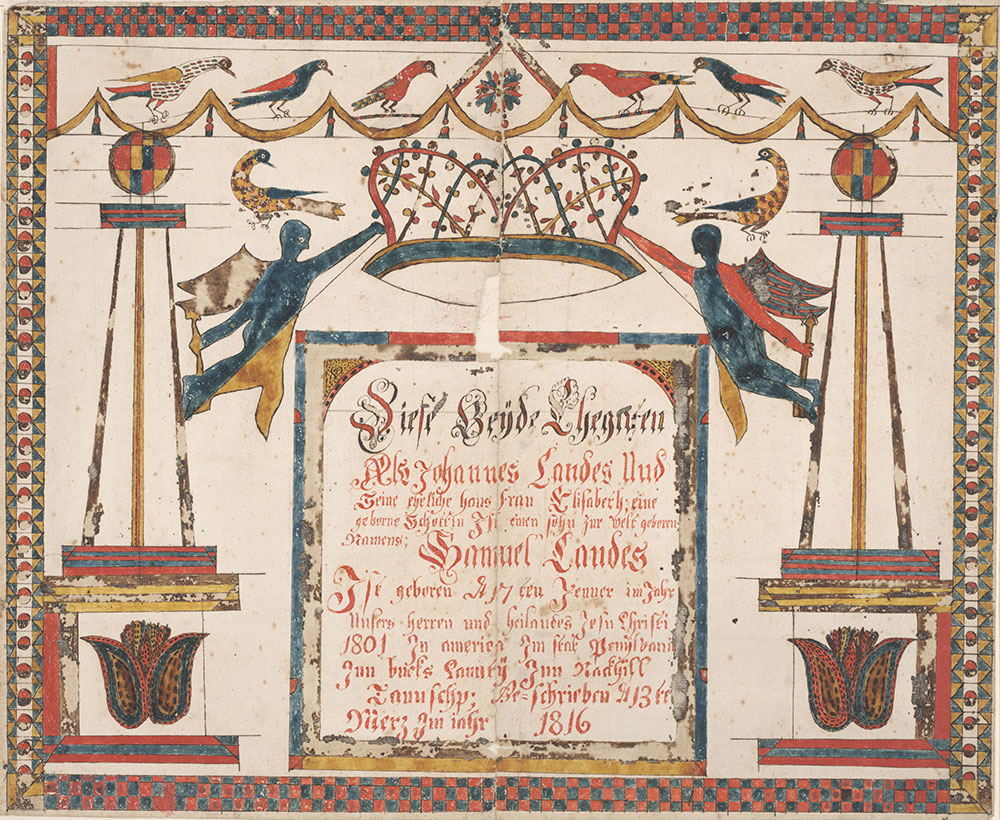 Diese Beyde Ehegatten
Als Johannes Landes Und
Seine eheliche haus frau Elisabeth; eine
geborne Ist einen sohn zur welt geboren
Namens; Samuel Landes
Ist geboren d 17 ten Jenner im Jahr
Unsers herren und heilandes Jesu Christi
1801 In america Im stat Penselvani
Inn bucks Caunty Inn Rackhill
Taunschp; Be=schrieben d 13 te
Merz Im iahr 1816